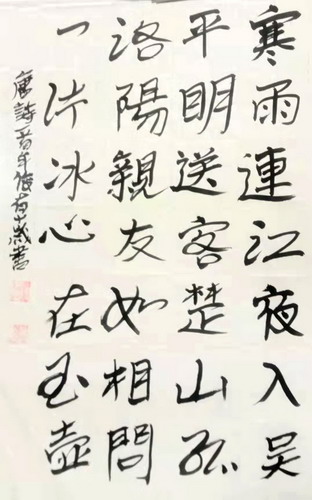 寒雨連江夜入吳
平明送客楚山孤
洛陽親友如相問
一片冰心在玉壺
唐詩一首
書